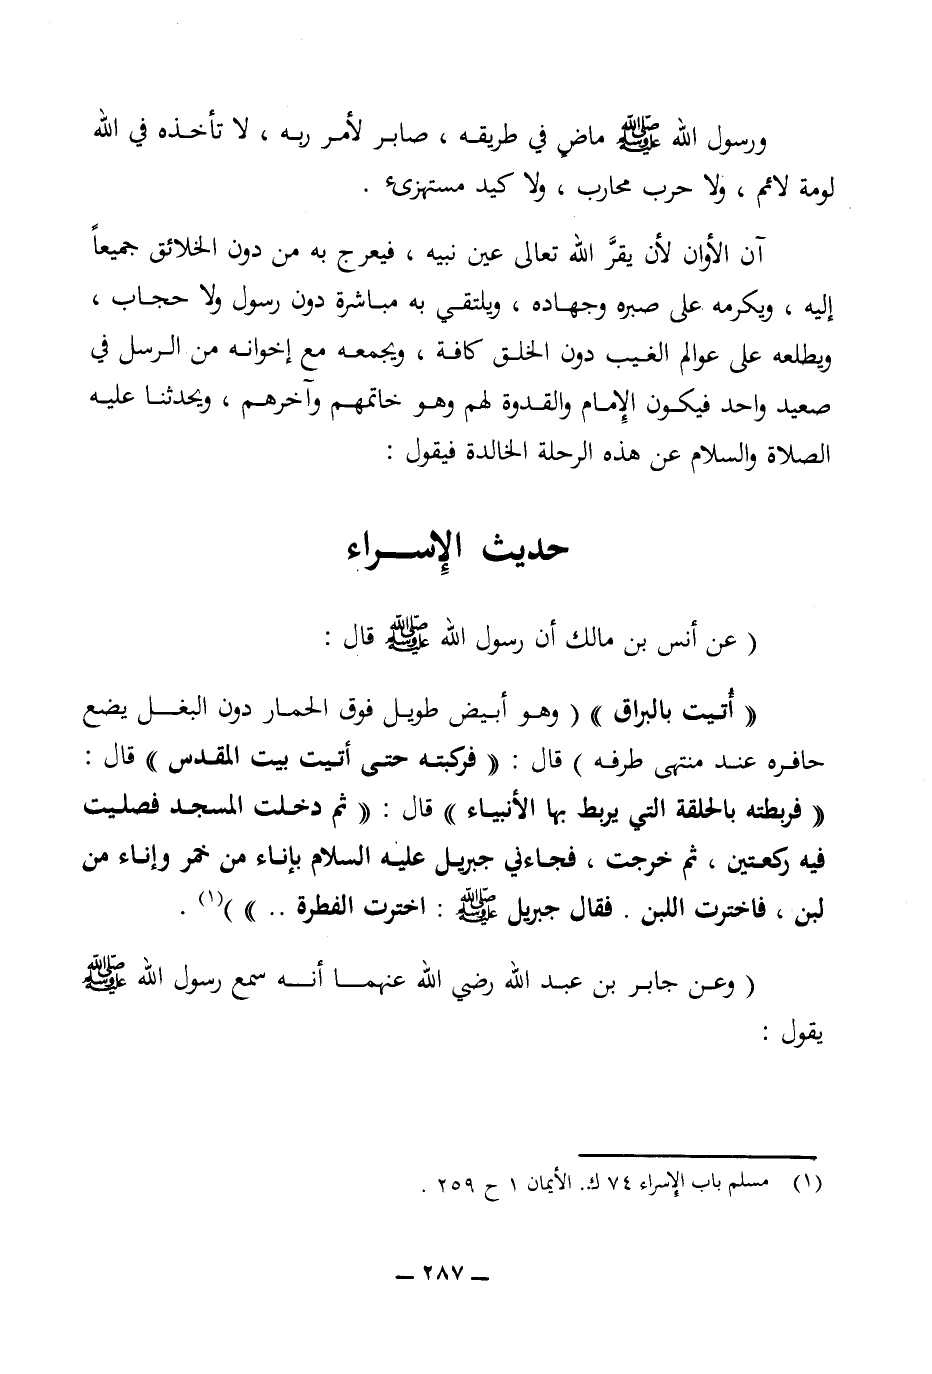 ورسول الله ﷺ ماضٍ في طريقه ، صابر لأمر ربه ، لا تأخذه في الله
لومة لائم ، ولا حرب محارب ، ولا كيد مستهزىء .
آن الأوان لأن يقرَّ الله تعالى عين نبيه ، فيعرج به من دون الخلائق جميعاً
إليه ، ويكرمه على صبره وجهاده ، ويلتقي به مباشرة دون رسول ولا حجاب ،
ويطلعه على عوالم الغيب دون الخلق كافة ، ويجمعه مع إخوانه من الرسل في
صعيد واحد فيكون الإمام والقدوة لهم وهو خاتمهم وآخرهم ، ويحدثنا عليه
الصلاة والسلام عن هذه الرحلة الخالدة فيقول :
حديث الإسراء
( عن أنس بن مالك أن رسول الله ﷺ قال :
« أُتيت بالبراق » ( وهو أبيض طويل فوق الحمار دون البغل يضع
حافره عند منتهى طرفه ) قال : « فركبته حتى أتيت بيت المقدس » قال :
« فربطته بالحلقة التي يربط بها الأنبياء » قال : « ثم دخلت المسجد فصليت
فيه ركعتين ، ثم خرجت ، فجاءني جبريل عليه السلام بإناء من خمر وإناء من
لبن ، فاخترت اللبن . فقال جبريل ﷺ : اخترت الفطرة .. » )(١) .
( وعن جابر بن عبد الله رضي الله عنهما أنه سمع رسول الله ﷺ
يقول :
(١) مسلم باب الإسراء ٧٤ ك. الأيمان ١ ح ٢٥٩ .
ـ ٢٨٧ ـ